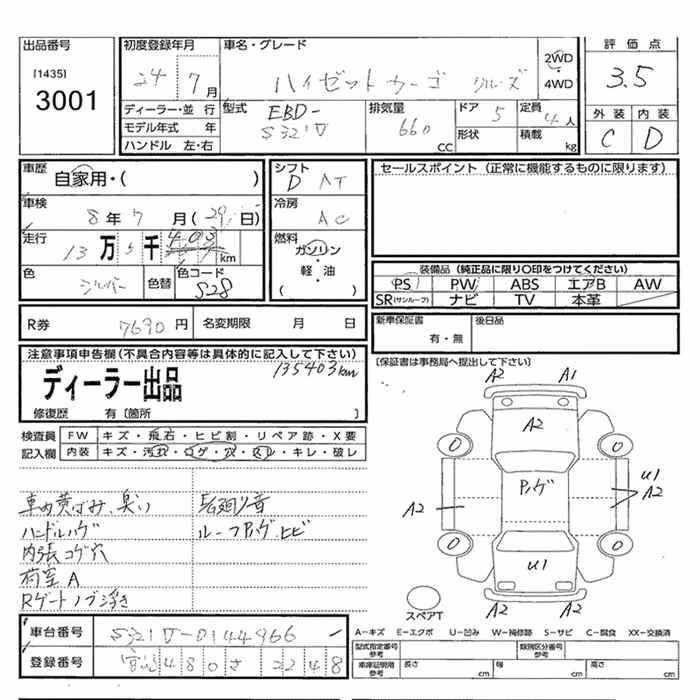 出品番号
[1435]
3001
初度登録年月
24 7 月
車名・グレード
ハイゼットカーゴ クルーズ
2WD
・
4WD
評価点
3.5
外装 内装
C D
ディーラー・並行
モデル年式 年
ハンドル 左・右
型式 EBD-
S321V
排気量
660
CC
ドア 5
形状
定員
4人
積載 kg
車歴
自家用・( )
車検
8年7月(29日)
走行
13万5千403km
色
シルバー
色替
色コード
S28
シフト
D AT
冷房
AC
燃料
ガソリン
・
軽・油
( )
セールスポイント(正常に機能するものに限ります)
装備品(純正品に限り○印をつけてください)
PS PW ABS エアB AW
SR(サンルーフ) ナビ TV 本革
R券 7690円 名変期限 月 日
新車保証書
有・無
後日品
[保証書は事務局へ提出して下さい]
注意事項申告欄(不具合内容等は具体的に記入して下さい)
135403km
ディーラー出品
修復歴 有[箇所 ]
検査員 FW キズ・飛石・ヒビ割・リペア跡・X要
記入欄 内装 キズ・汚れ・コゲ・穴・スレ・キレ・破レ
車内黄ばみ、臭い
ハンドルハゲ
内張コゲ穴
荷室A
Rゲートノブ浮き
足廻り音
ルーフハゲ、ヒビ
A2 A1
A2
0 0
ハゲ
A2
U1
A2
0 0
U1
A2 A2
スペアT
A-キズ E-エクボ U-凹み W-補修跡 S-サビ C-腐食 XX-交換済
車台番号 S321V-0144966 -
登録番号 宮崎 480 さ 2248
型式指定番号
参考
類別区分番号
参考
車庫証明用
参考
長さ cm 幅 cm 高さ cm